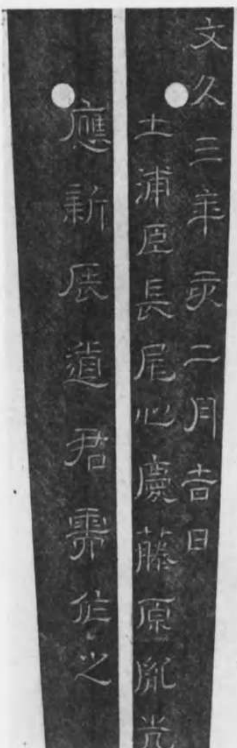 文久三年亥二月吉日
土浦臣長尾心慶藤原胤光
應新居道君需作之